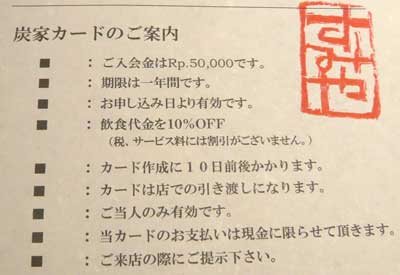 炭家カードのご案内
すみや
■ : ご入会金はRp.50,000です。
■ : 期限は一年間です。
■ : お申し込み日より有効です。
■ : 飲食代金を10%OFF
(税、サービス料には割引がございません。)
■ : カード作成に10日前後かかります。
■ : カードは店での引き渡しになります。
■ : ご当人のみ有効です。
■ : 当カードのお支払いは現金に限らせて頂きます。
■ : ご来店の際にご提示下さい。